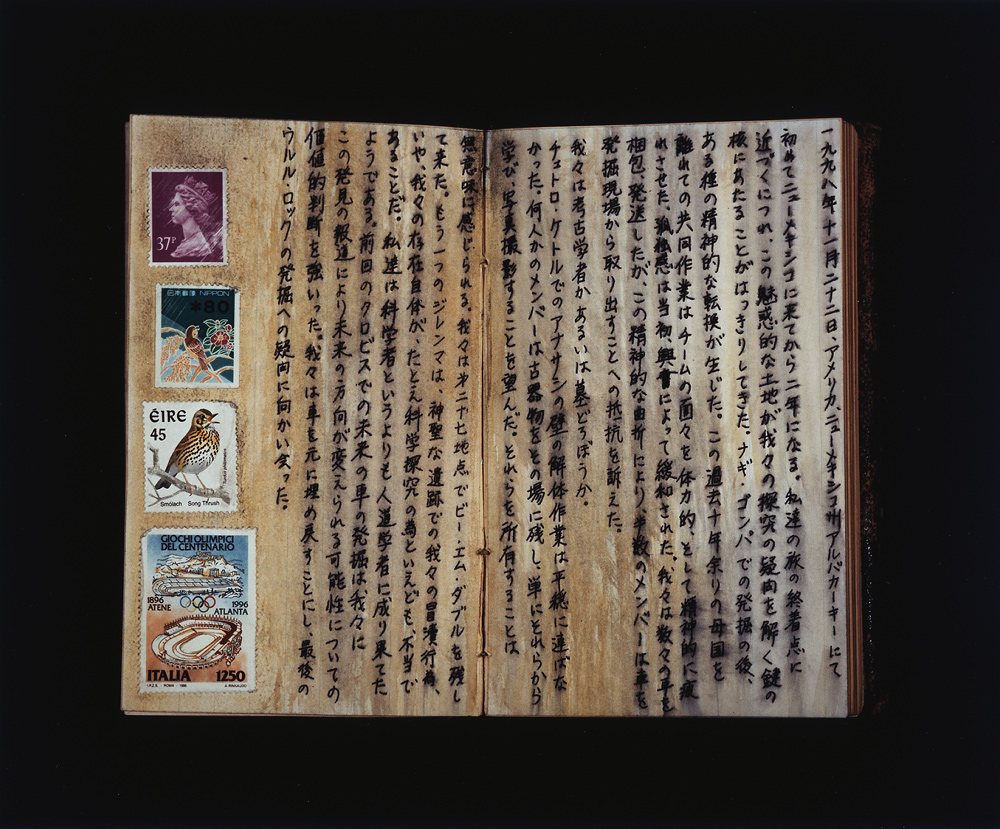 一九九八年十一月二十二日、アメリカ、ニューメキシコ州アルバカーキーにて
初めてニューメキシコに来てから二年になる。私達の旅の終着点に
近づくにつれ、この魅惑的な土地が我々の探究の疑問を解く鍵の
核にあたることがはっきりしてきた。ナギ ゴンパでの発掘の後、
ある種の精神的な転換が生じた。この過去十年余りの母国を
離れての共同作業はチームの面々を体力的、そして精神的に疲
れさせた。孤独感は当初、興奮によって緩和された。我々は数々の車を
梱包、発送したが、この精神的な曲折により、半数のメンバーは車を
発掘現場から取り出すことへの抵抗を訴えた。
我々は考古学者かあるいは墓どろぼうか。
チェトロ・ケトルでのアナサシの壁の解体作業は平穏に運ばな
かった。何人かのメンバーは古器物をその場に残し、単にそれらから
学び、写真撮影することを望んだ。それらを所有することは
無意味に感じられる。我々は第二十七地点でビー・エム・ダブルを残し
て来た。もう一つのジレンマは、神聖な遺跡での我々の冒涜行為、
いや、我々の存在自体が、たとえ科学探究の為といえども、不当で
あることだ。私達は科学者というよりも人道学者に成り果てた
ようである。前回のクロビスでの未来の車の発掘は我々に
この発見の報道により未来の方向が変えられる可能性についての
価値的判断を強いった。我々は車を元に埋め戻すことにし、最後の
ウルル・ロックの発掘への疑問に向かい合った。
37P
日本郵便 NIPPON
80
ÉIRE
45
Smólach Song Thrush
GIOCHI OLIMPICI
DEL CENTENARIO
1896
ATENE
1996
ATLANTA
ITALIA 1250
I.P.Z.S. - ROMA - 1996